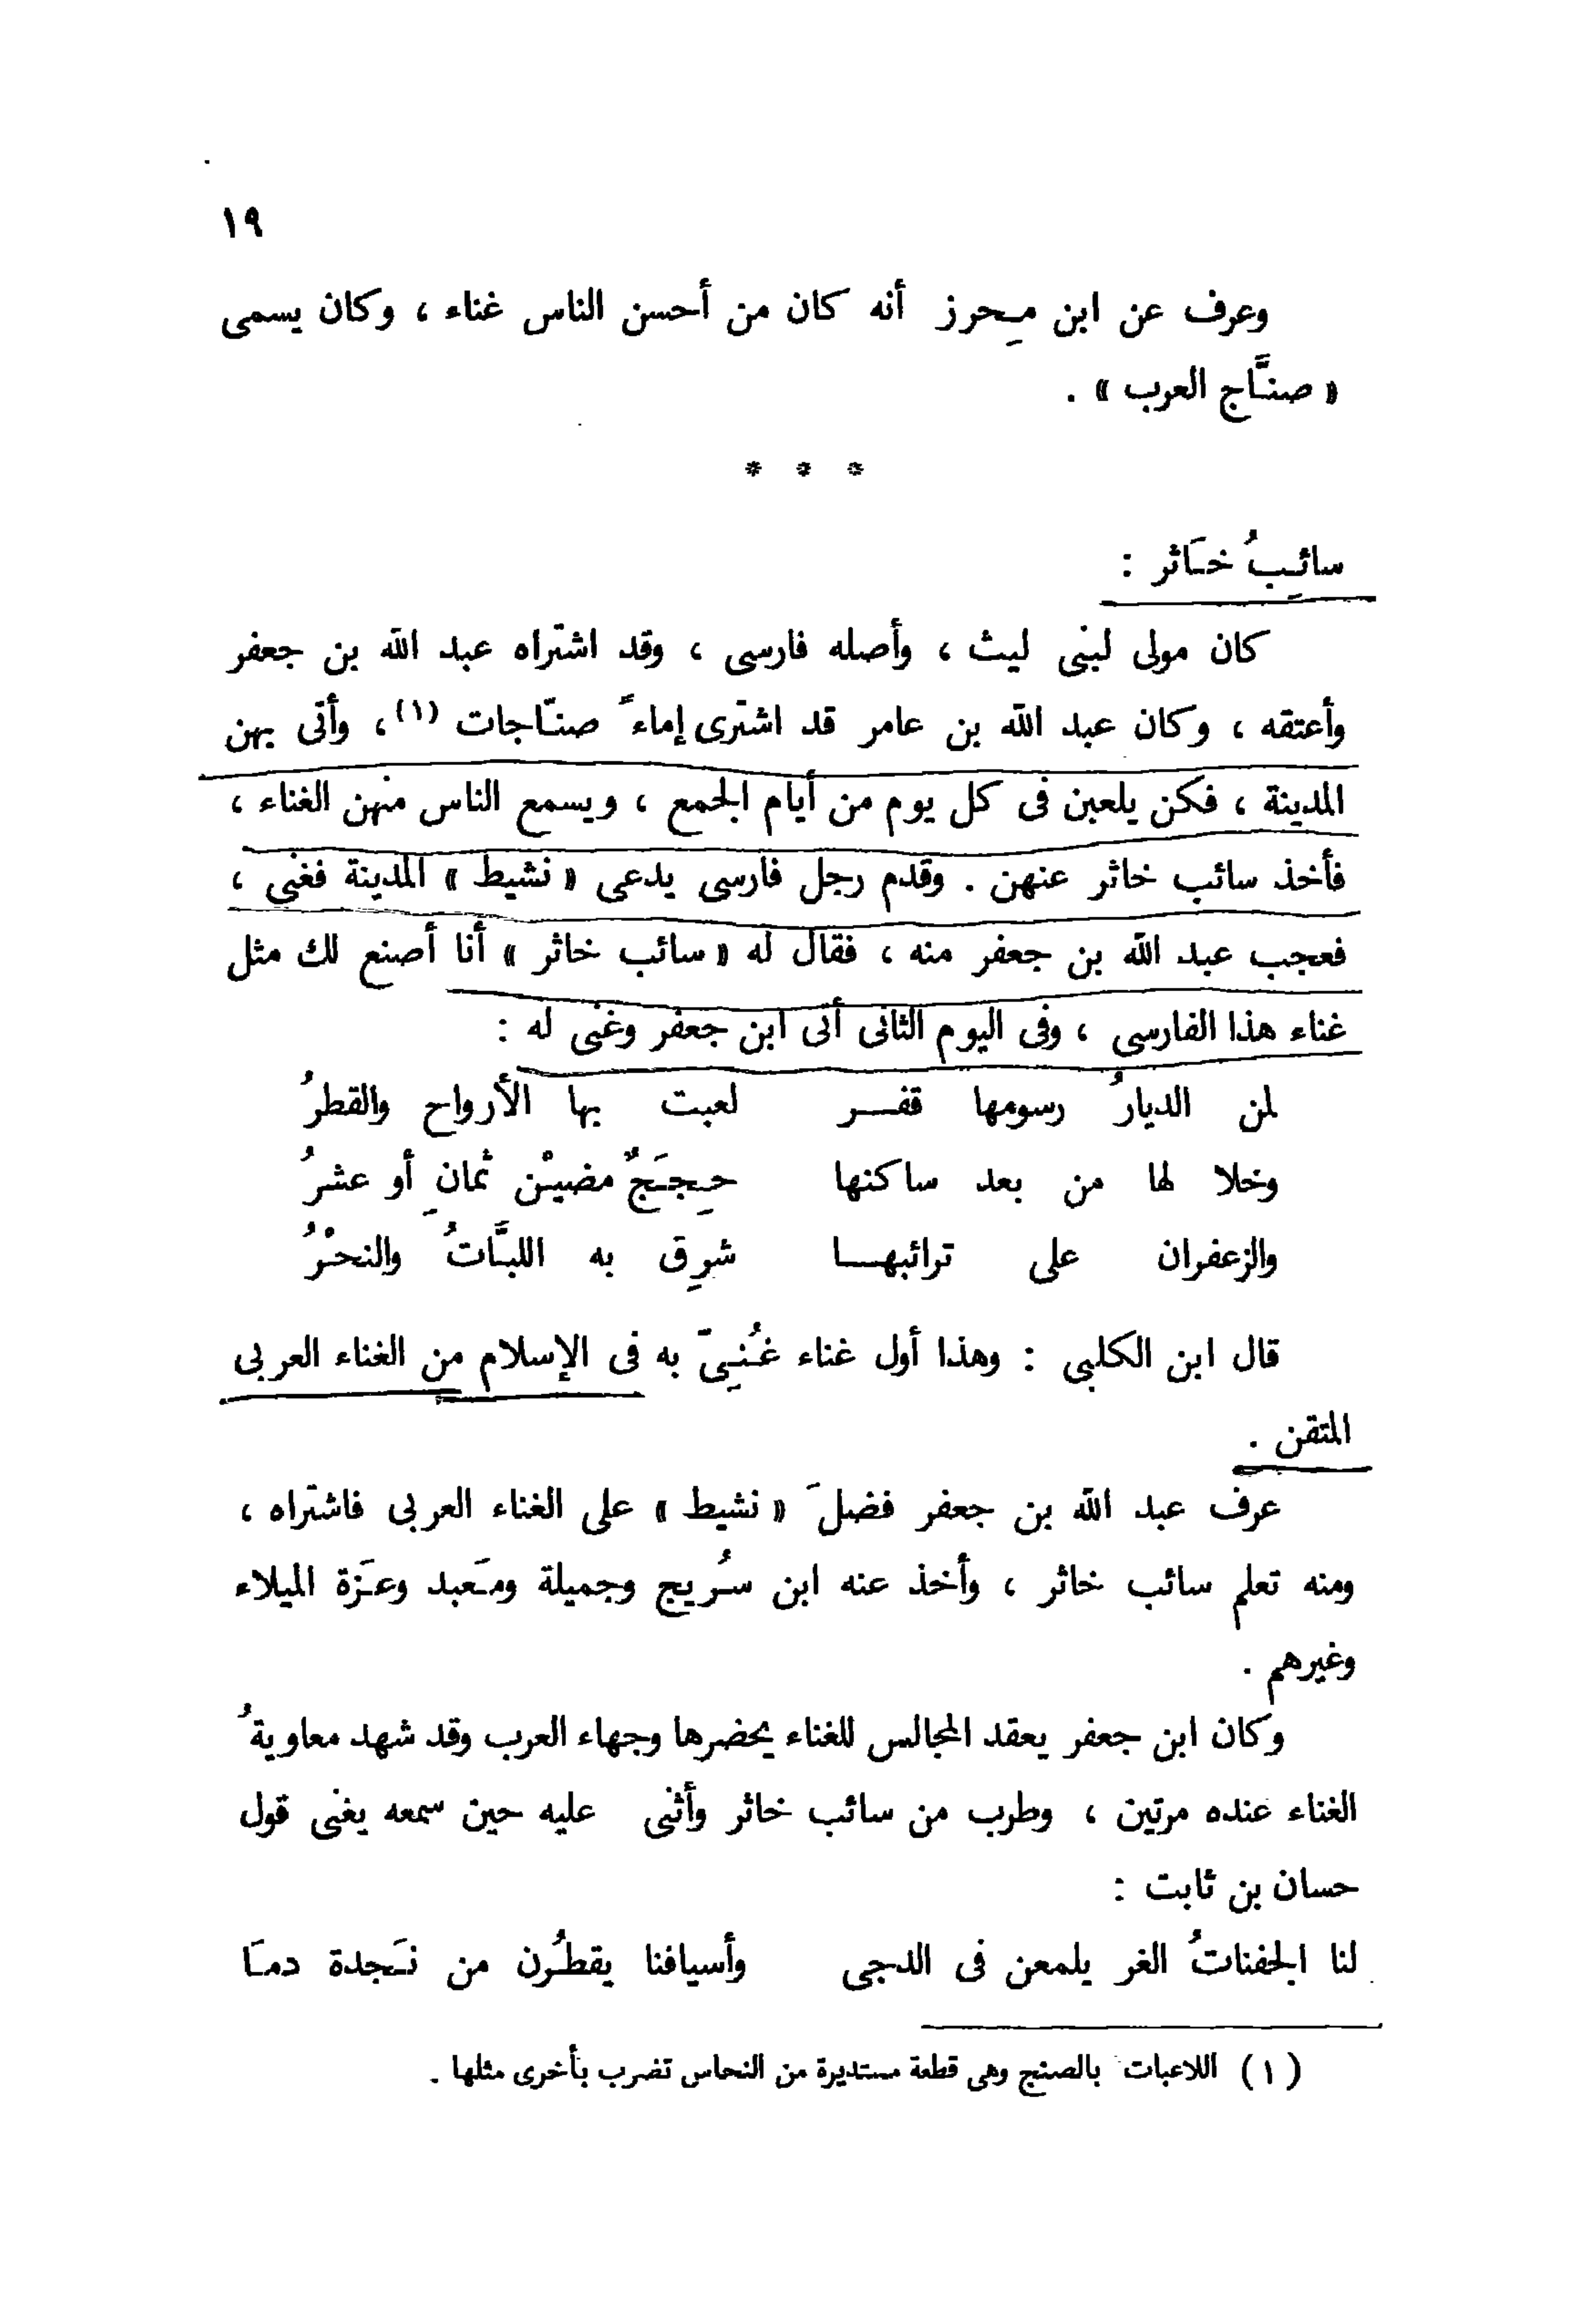 ١٩
وعرف عن ابن مِحرز أنه كان من أحسن الناس غناء ، وكان يسمى
« صنَّاج العرب » .
* * *
سائِبُ خَاثر :
كان مولى لبنى ليث ، وأصله فارسى ، وقد اشتراه عبد الله بن جعفر
وأعتقه ، وكان عبد الله بن عامر قد اشترى إماءً صنّاجات (١) ، وأتى بهن
المدينة ، فكن يلعبن فى كل يوم من أيام الجمع ، ويسمع الناس منهن الغناء ،
فأخذ سائب خاثر عنهن . وقدم رجل فارسى يدعى « نشيط » المدينة فغنى ،
فعجب عبد الله بن جعفر منه ، فقال له « سائب خاثر » أنا أصنع لك مثل
غناء هذا الفارسى ، وفى اليوم الثانى أتى ابن جعفر وغنى له :
لمن الديارُ رسومها قفـــر لعبت بها الأرواح والقطرُ
وخلا لها من بعد ساكنها حِجَجٌ مضيْن ثمانِ أو عشرُ
والزعفران على ترائبهـــا شرِق به اللبَّاتُ والنحْرُ
قال ابن الكلبى : وهذا أول غناء غُنِىّ به فى الإسلام من الغناء العربى
المتقن .
عرف عبد الله بن جعفر فضلَ « نشيط » على الغناء العربى فاشتراه ،
ومنه تعلم سائب خاثر ، وأخذ عنه ابن سُريج وجميلة ومَعبد وعَزة الميلاء
وغيرهم .
وكان ابن جعفر يعقد المجالس للغناء يحضرها وجهاء العرب وقد شهد معاويةُ
الغناء عنده مرتين ، وطرب من سائب خاثر وأثنى عليه حين سمعه يغنى قول
حسان بن ثابت :
لنا الجفناتُ الغر يلمعن فى الدجى وأسيافنا يقطُرن من نَجدة دمَا
(١) اللاعبات بالصنج وهى قطعة مستديرة من النحاس تضرب بأخرى مثلها .